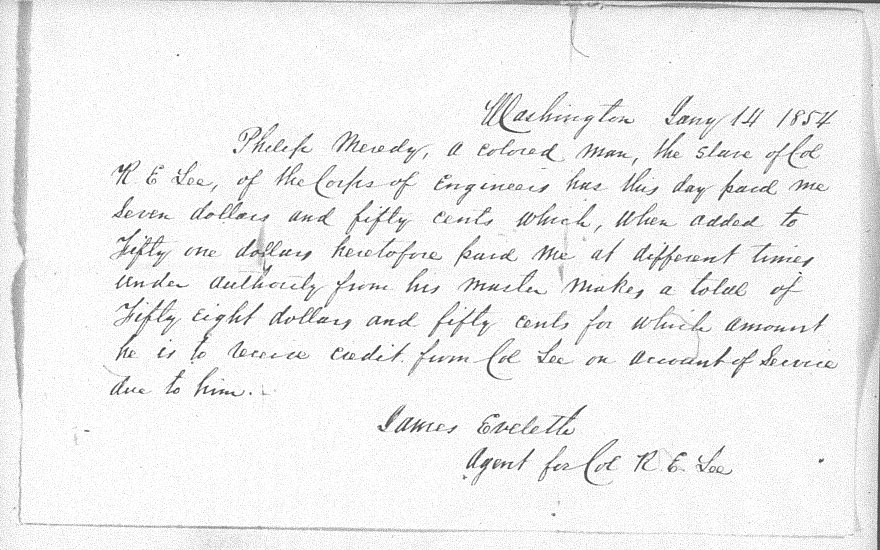 Washington Jany 14 1854
Philip Meredy, a colored man, the slave of Col
R E Lee, of the Corps of Engineers has this day paid me
Seven dollars and fifty cents which, when added to
Fifty one dollars heretofore paid me at different times
under authority from his master makes a total of
Fifty eight dollars and fifty cents for which amount
he is to receive credit from Col Lee on account of Service
due to him.
James Eveleth
Agent for Col R. E. Lee